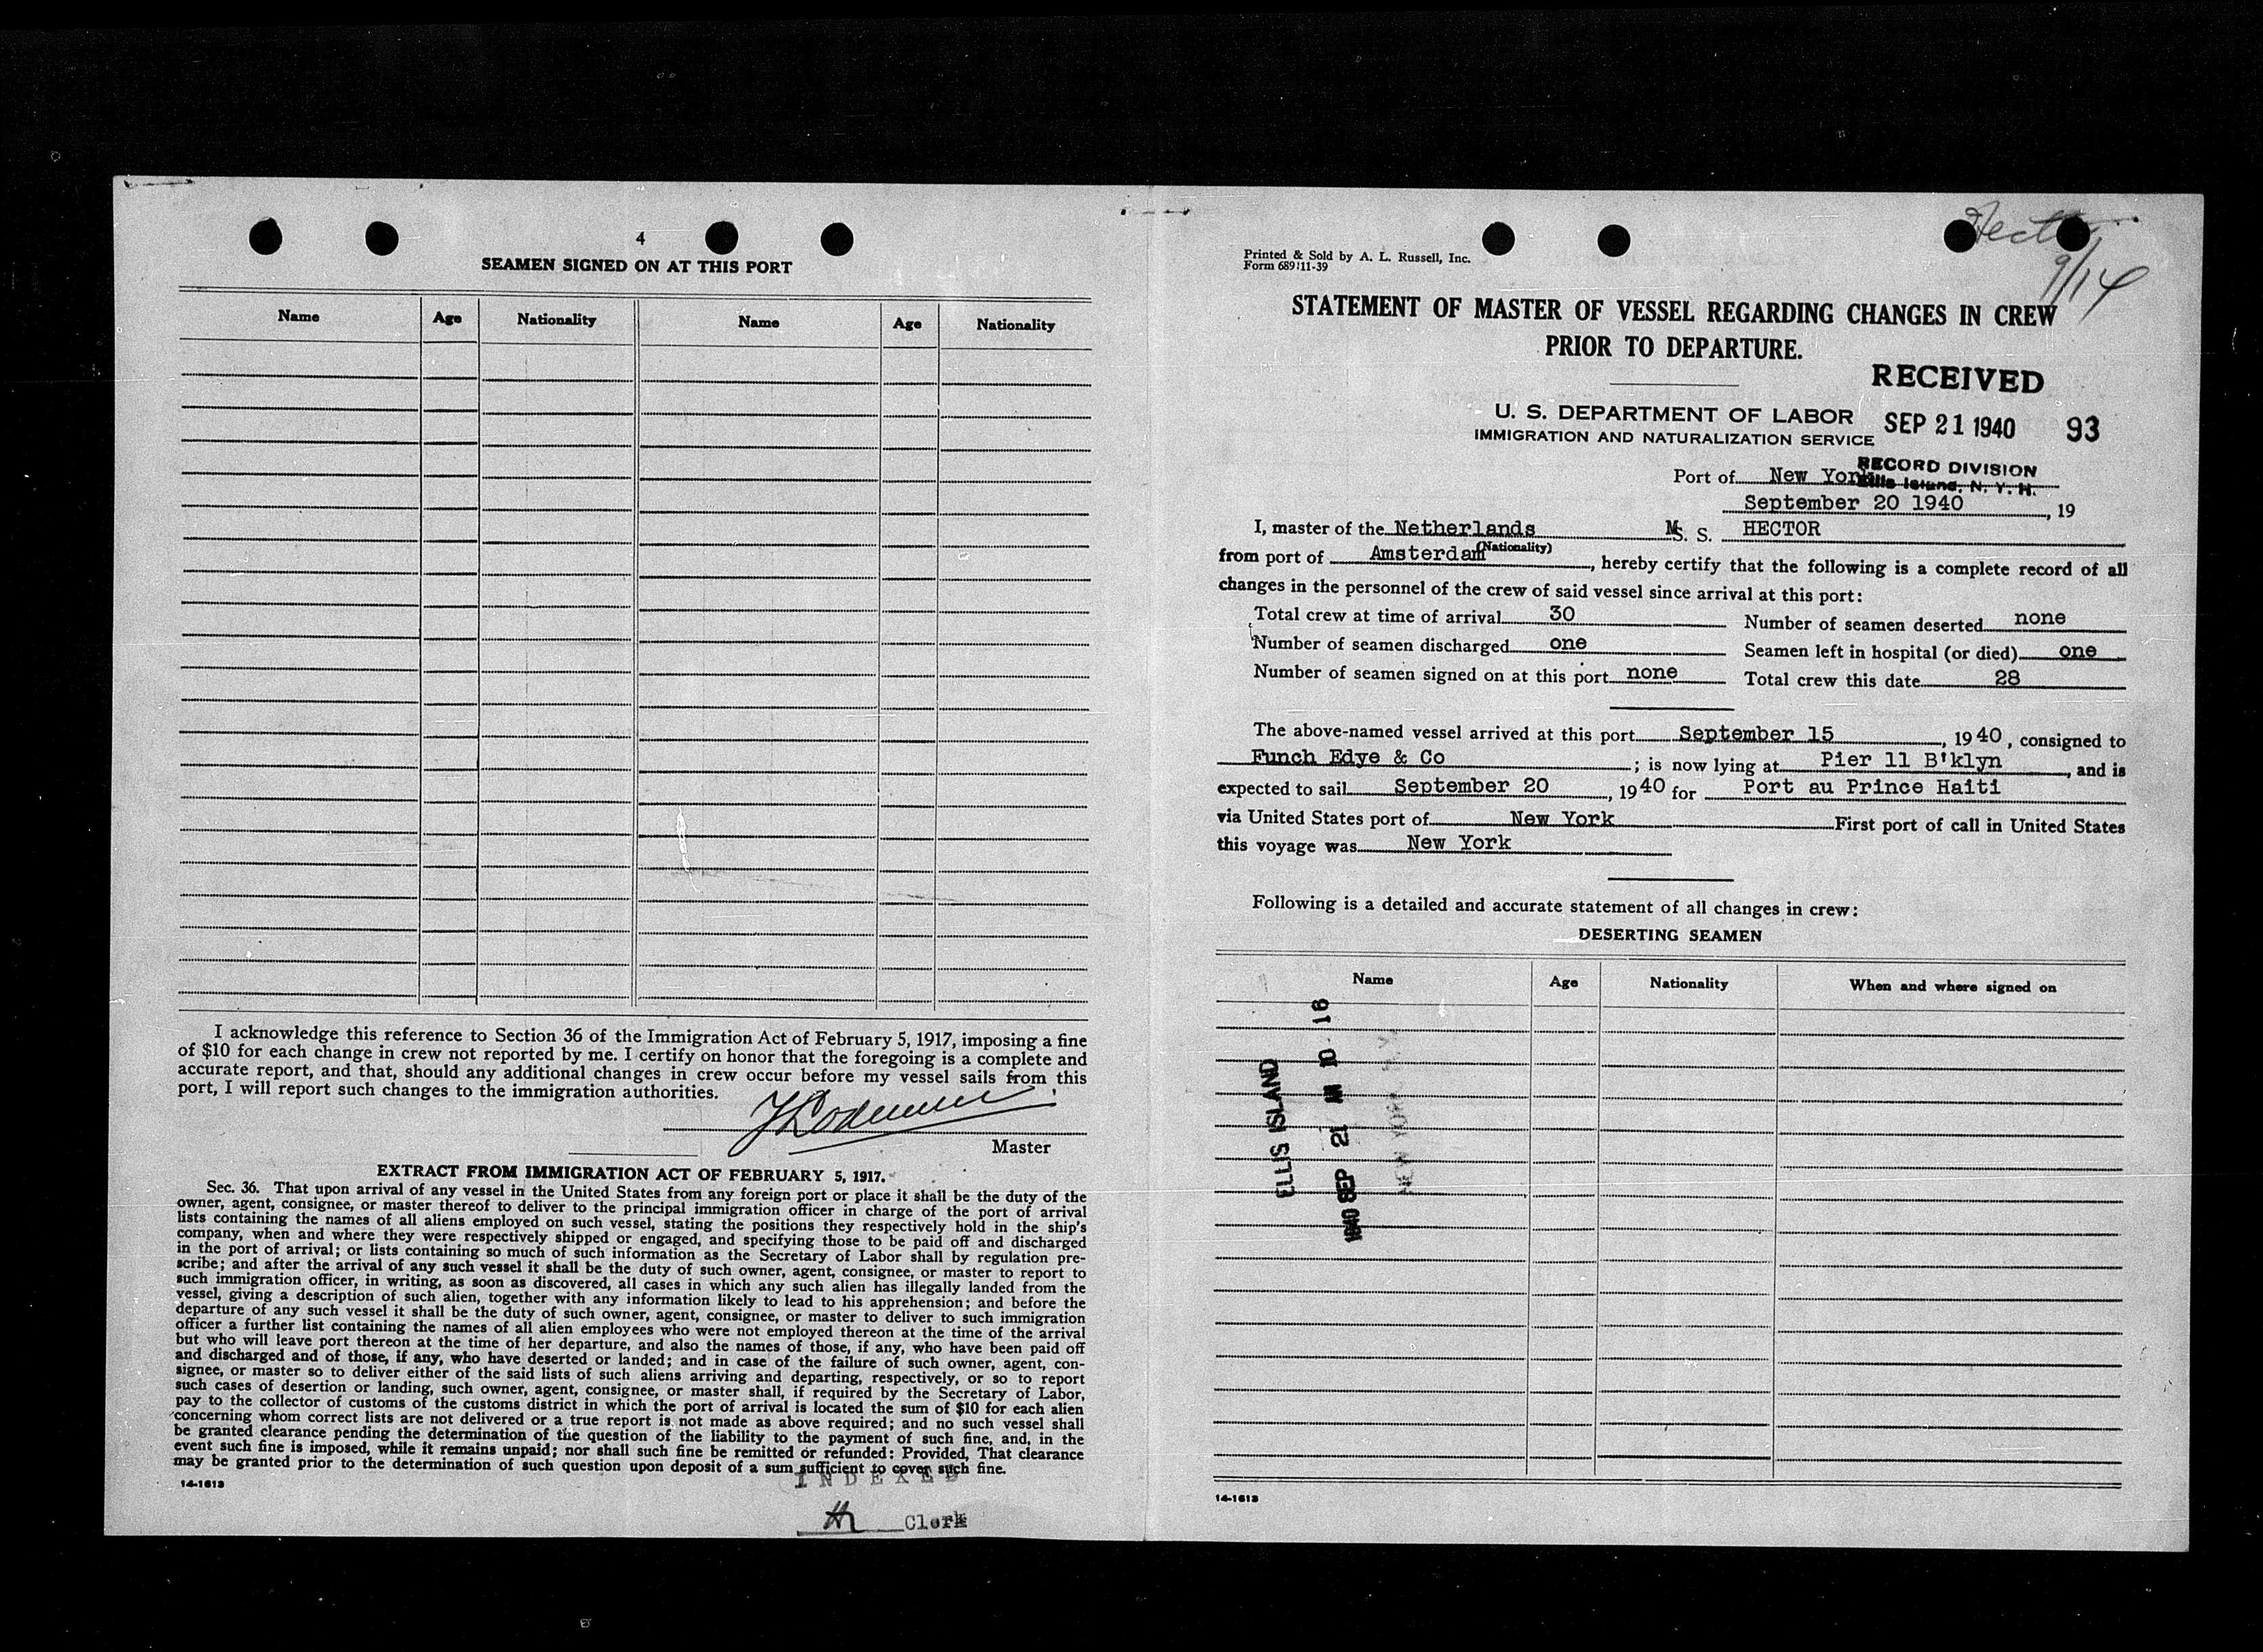 4
SEAMEN SIGNED ON AT THIS PORT
Name Age Nationality Name Age Nationality
I acknowledge this reference to Section 36 of the Immigration Act of February 5, 1917, imposing a fine
of $10 for each change in crew not reported by me. I certify on honor that the foregoing is a complete and
accurate report, and that, should any additional changes in crew occur before my vessel sails from this
port, I will report such changes to the immigration authorities.
Master
EXTRACT FROM IMMIGRATION ACT OF FEBRUARY 5, 1917.
Sec. 36. That upon arrival of any vessel in the United States from any foreign port or place it shall be the duty of the
owner, agent, consignee, or master thereof to deliver to the principal immigration officer in charge of the port of arrival
lists containing the names of all aliens employed on such vessel, stating the positions they respectively hold in the ship's
company, when and where they were respectively shipped or engaged, and specifying those to be paid off and discharged
in the port of arrival; or lists containing so much of such information as the Secretary of Labor shall by regulation pre-
scribe; and after the arrival of any such vessel it shall be the duty of such owner, agent, consignee, or master to report to
such immigration officer, in writing, as soon as discovered, all cases in which any such alien has illegally landed from the
vessel, giving a description of such alien, together with any information likely to lead to his apprehension; and before the
departure of any such vessel it shall be the duty of such owner, agent, consignee, or master to deliver to such immigration
officer a further list containing the names of all alien employees who were not employed thereon at the time of the arrival
but who will leave port thereon at the time of her departure, and also the names of those, if any, who have been paid off
and discharged and of those, if any, who have deserted or landed; and in case of the failure of such owner, agent, con-
signee, or master so to deliver either of the said lists of such aliens arriving and departing, respectively, or so to report
such cases of desertion or landing, such owner, agent, consignee, or master shall, if required by the Secretary of Labor,
pay to the collector of customs of the customs district in which the port of arrival is located the sum of $10 for each alien
concerning whom correct lists are not delivered or a true report is not made as above required; and no such vessel shall
be granted clearance pending the determination of the question of the liability to the payment of such fine, and, in the
event such fine is imposed, while it remains unpaid; nor shall such fine be remitted or refunded: Provided, That clearance
may be granted prior to the determination of such question upon deposit of a sum sufficient to cover such fine.
14-1613
INDEXED
Clerk
Hector
9/14
Printed & Sold by A. L. Russell, Inc.
Form 689/11-39
STATEMENT OF MASTER OF VESSEL REGARDING CHANGES IN CREW
PRIOR TO DEPARTURE.
RECEIVED
U. S. DEPARTMENT OF LABOR SEP 21 1940 93
IMMIGRATION AND NATURALIZATION SERVICE
RECORD DIVISION
Port of New York
Ellis Island, N. Y. H.
September 20 1940, 19
I, master of the Netherlands M. S. S. HECTOR
(Nationality)
from port of Amsterdam, hereby certify that the following is a complete record of all
changes in the personnel of the crew of said vessel since arrival at this port:
Total crew at time of arrival 30 Number of seamen deserted none
Number of seamen discharged one Seamen left in hospital (or died) one
Number of seamen signed on at this port none Total crew this date 28
The above-named vessel arrived at this port September 15, 1940, consigned to
Funch Edye & Co; is now lying at Pier 11 B'klyn, and is
expected to sail September 20, 1940 for Port au Prince Haiti
via United States port of New York First port of call in United States
this voyage was New York
Following is a detailed and accurate statement of all changes in crew:
DESERTING SEAMEN
Name Age Nationality When and where signed on
ELLIS ISLAND
1940 SEP 21 AM 10 16
NEW YORK N.Y.
14-1613